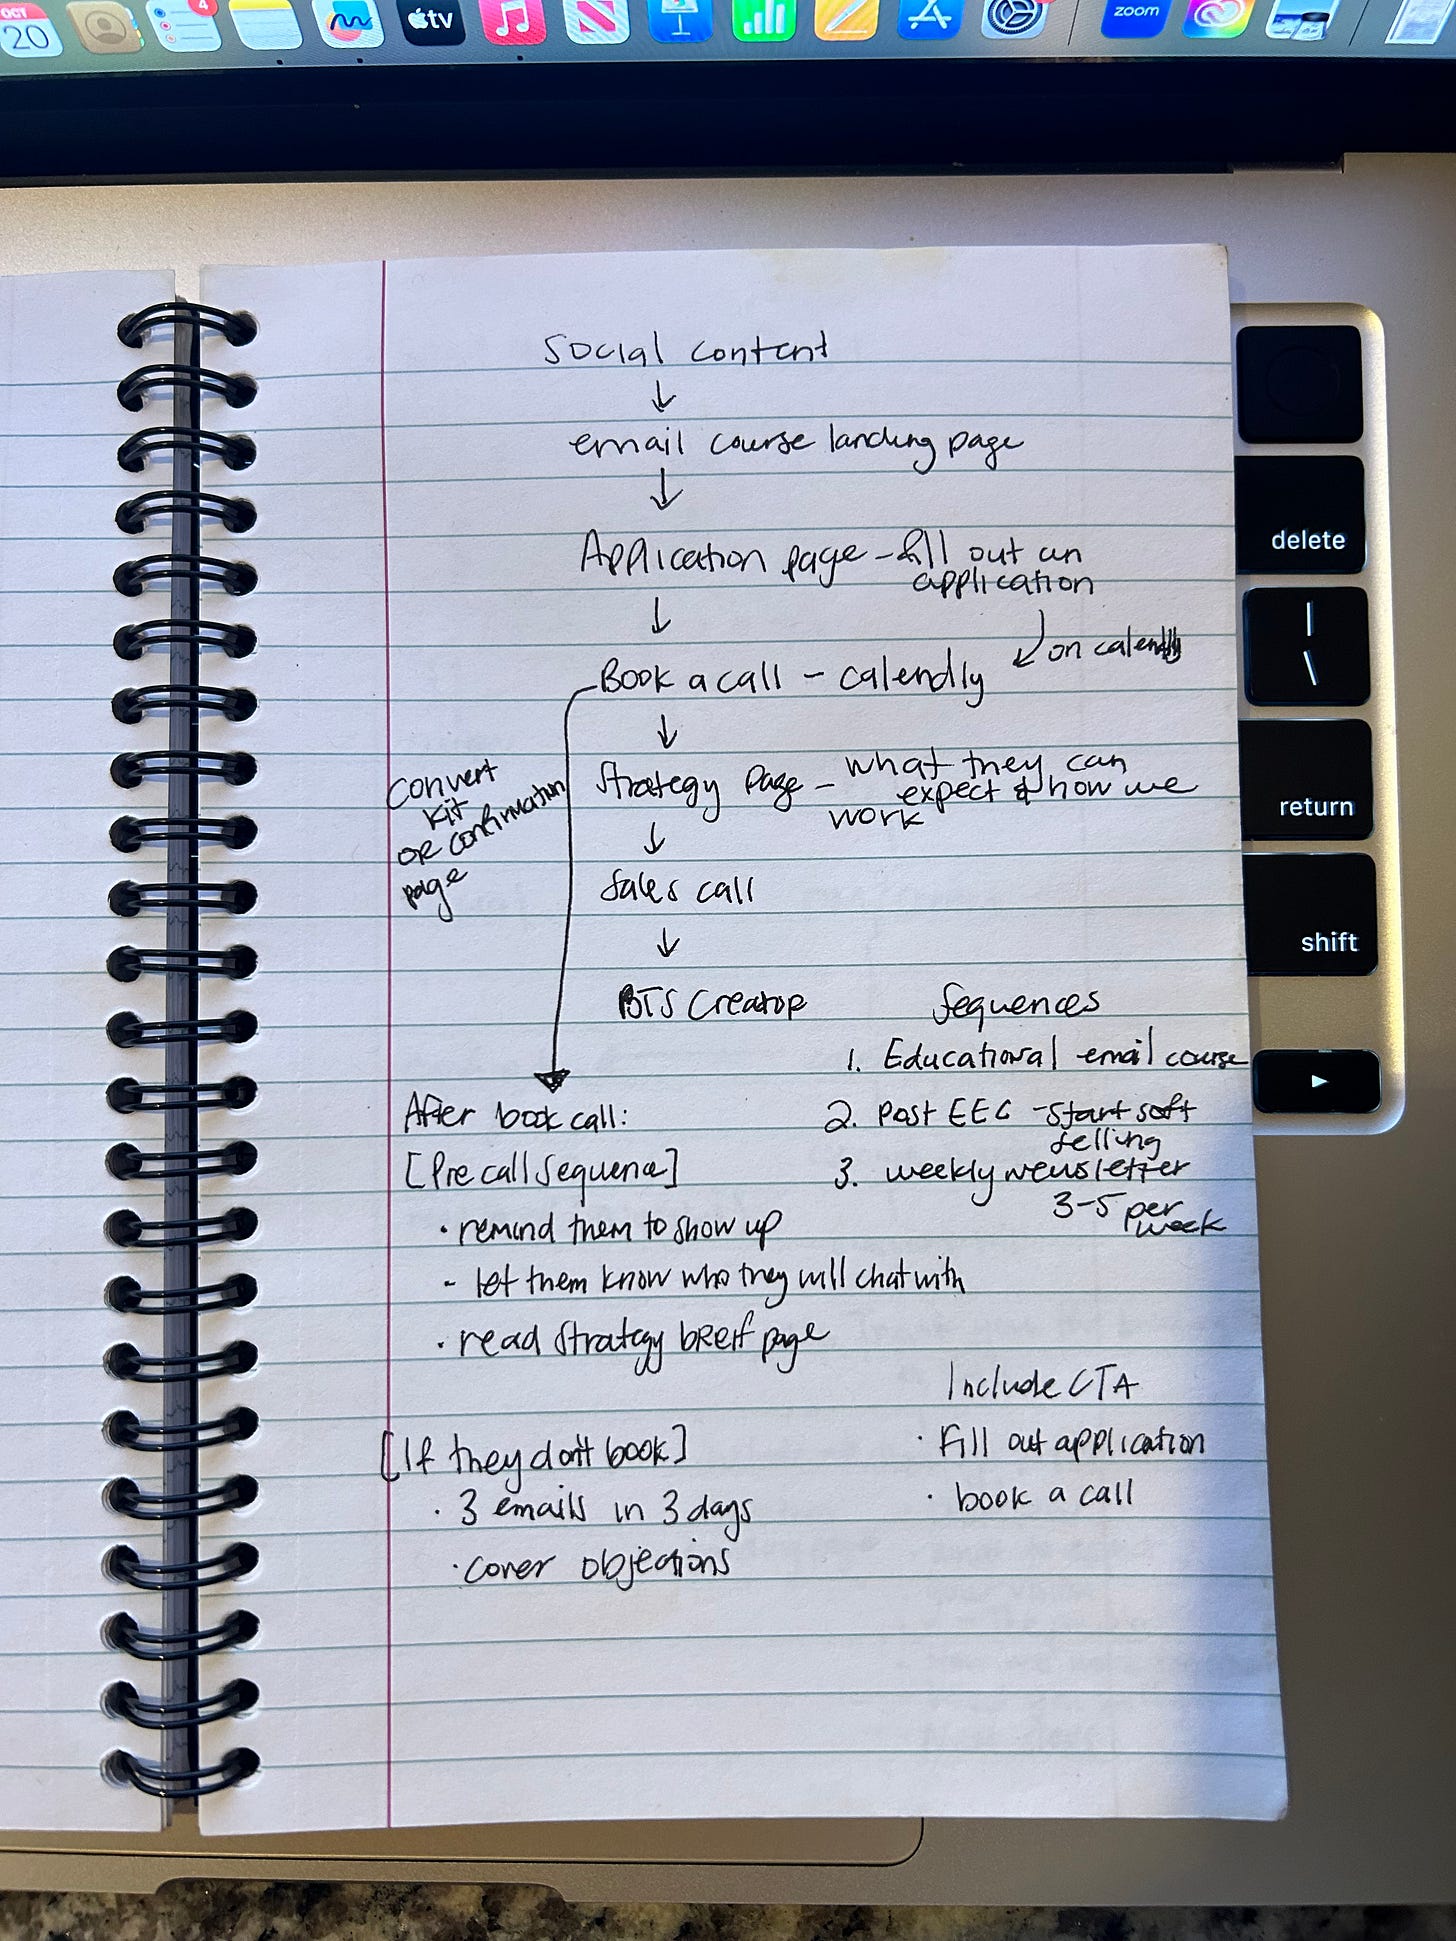 OCT
20
4
tv
zoom
social content
↓
email course landing page
↓
Application page - fill out an
application
↓
on calendly
Book a call - calendly
↓
convert
kit
OR confirmation
page
Strategy Page - what they can
expect & how we
work
↓
Sales call
↓
BTS Creator
Sequences
1. Educational email course
2. Post EEC - start soft
selling
3. weekly newsletter
3-5 per
week
After book call:
[Pre call sequence]
• remind them to show up
- let them know who they will chat with
• read strategy breif page
Include CTA
• Fill out application
• book a call
[If they don't book]
• 3 emails in 3 days
• cover objections
delete
|
\
return
shift